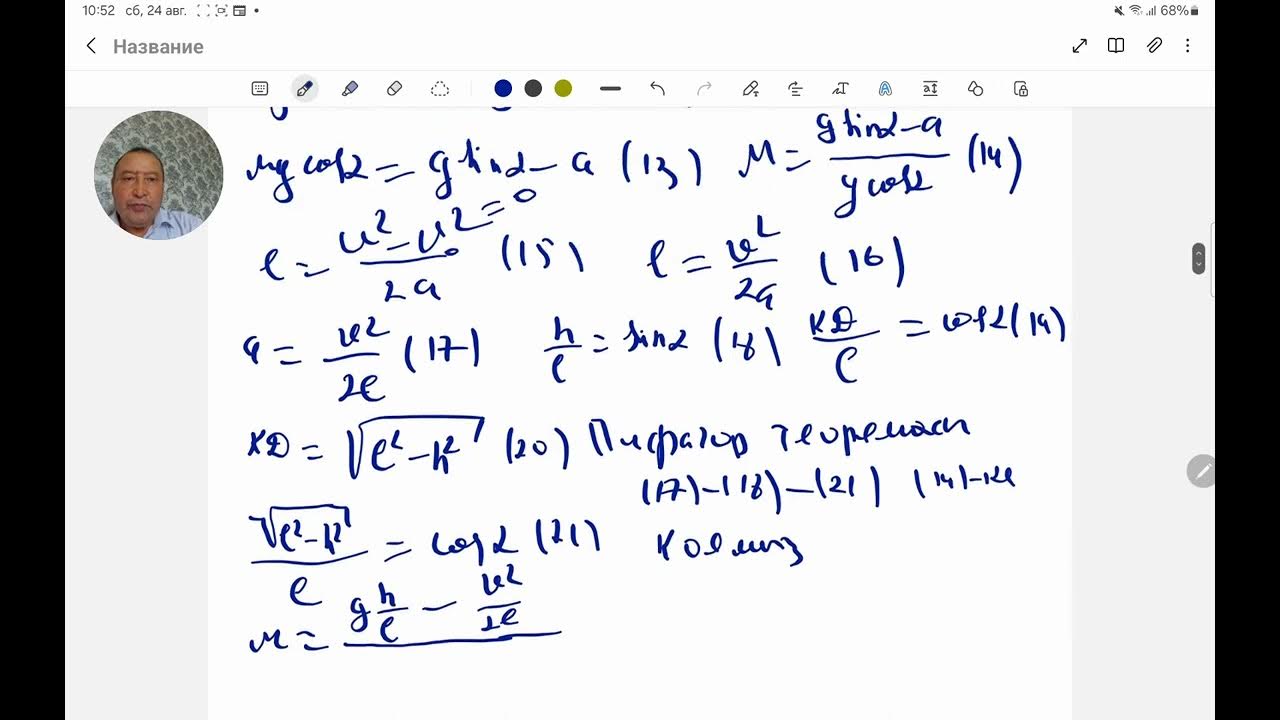 10:52 сб, 24 авг. 68%
Название
μg cosα = g sinα − a (13) μ = (g sinα − a)/(g cosα) (14)
ℓ = (υ² − υ₀² = 0)/(2a) (15) ℓ = υ²/(2a) (16)
a = υ²/(2ℓ) (17) h/ℓ = sinα (18) KD/ℓ = cosα (19)
KD = √(ℓ² − h²) (20) Пифагор теоремасы
(17)–(18)–(21) (14)-ке
√(ℓ² − h²)/ℓ = cosα (21) Коямыз
μ = (g h/ℓ − υ²/(2ℓ))/